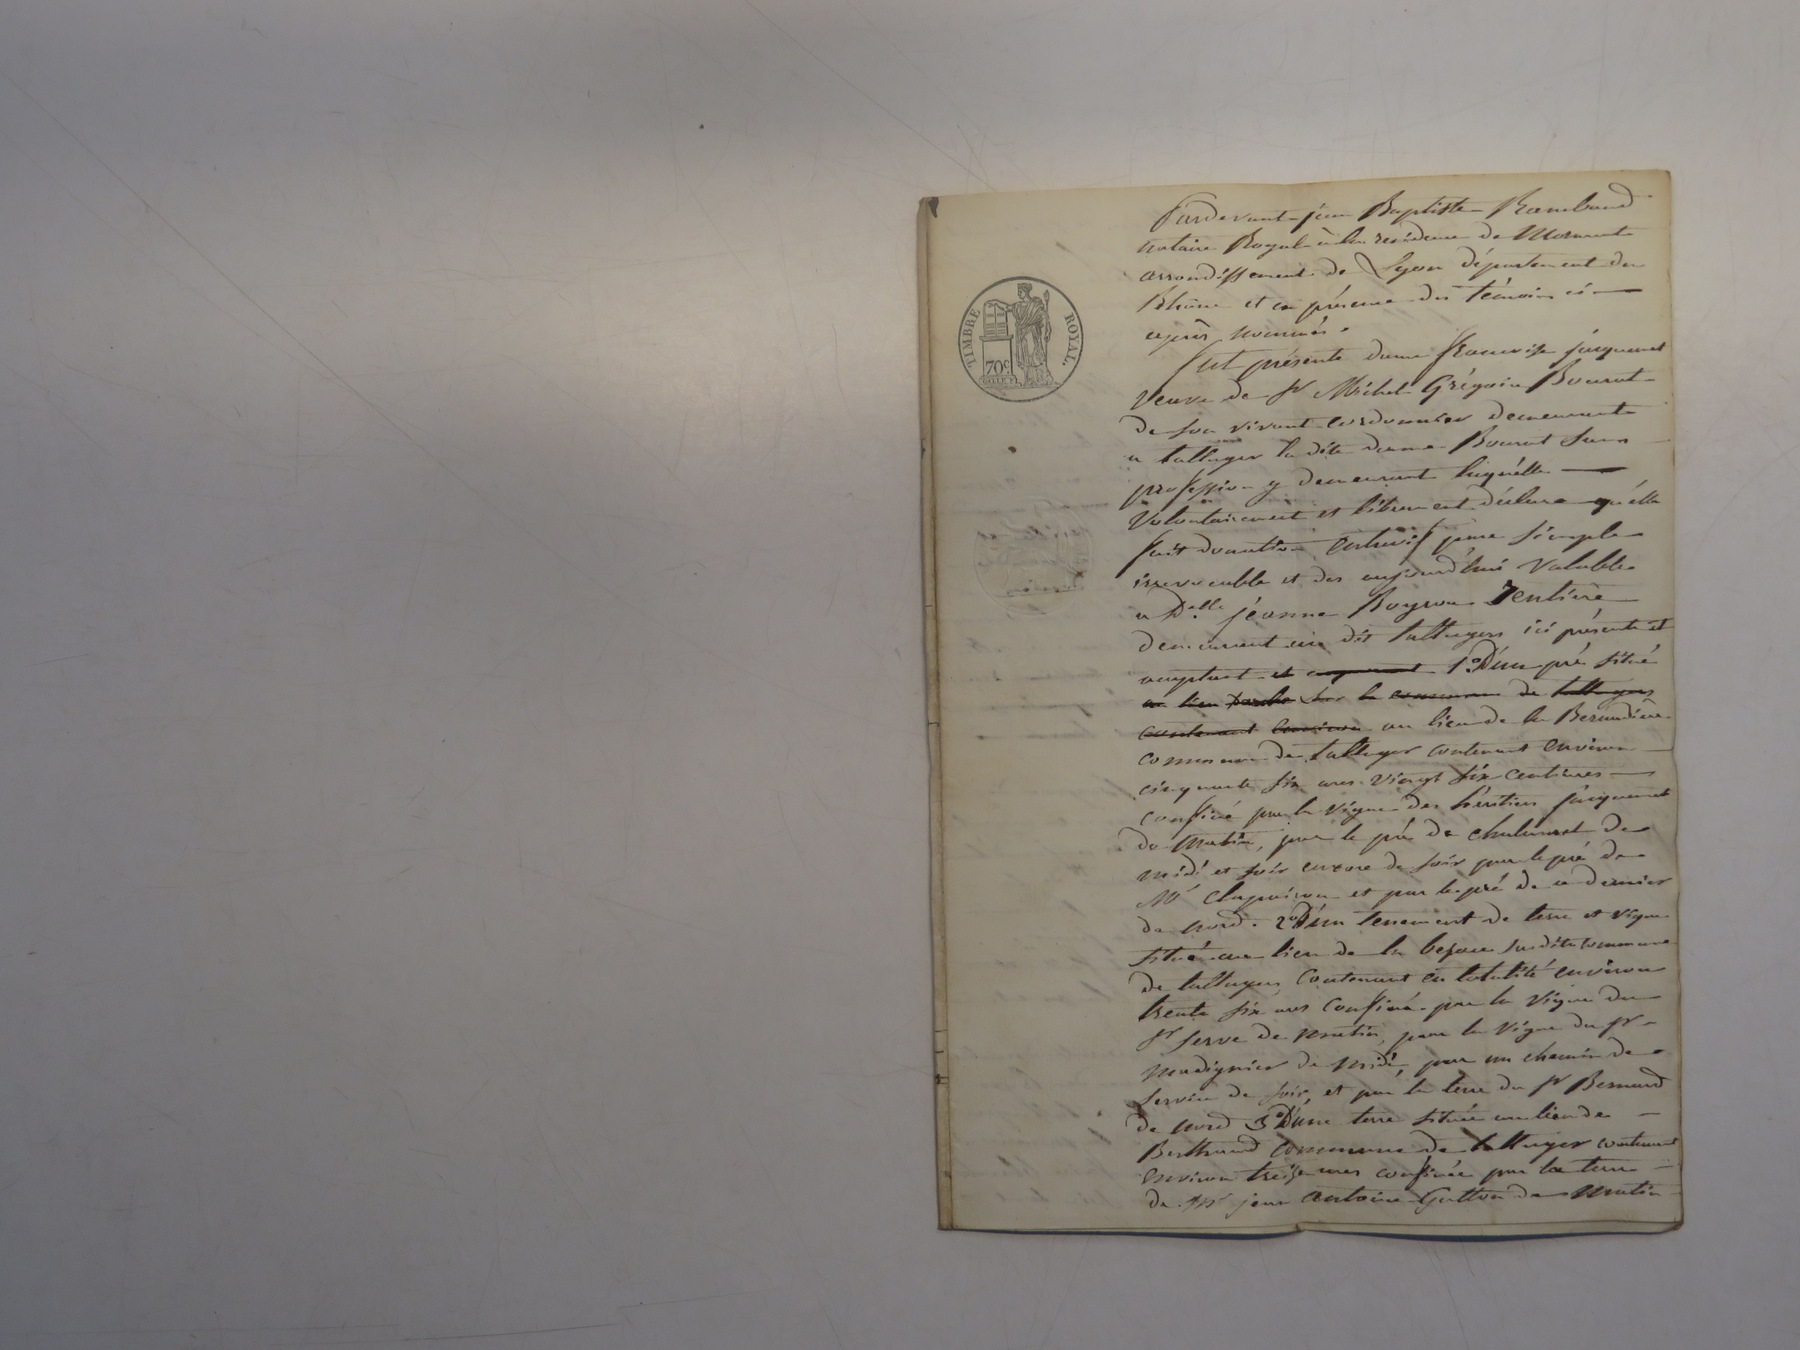 TIMBRE ROYAL
70c
Pardevant jean Baptiste Rambaud
notaire Royal à la résidence de Mornant
arrondissement de Lyon département du
Rhône et en présence des témoins ci
après nommés.
fut présente dame françoise jacquemet
veuve de Sr Michel Grégoire Bourat
de son vivant cordonnier demeurant
a talluyer la dite dame Bourat sans
profession y demeurant laquelle
volontairement et librement déclare quelle
fait donation entrevifs pure simple
irrevocable et des aujourd'hui valable
a Delle jeanne Boyron Rentière
demeurant au dit talluyers ici présente et
acceptant et 1° D'un pré situé
au lieu sur la commune de talluyers
contenant environ au lieu de la Beraudière
commune de talluyer contenant environ
cinquante six ares vingt six centiares
confiné par la vigne des héritiers jacquemet
de matin, par le pré de de
midi et soir encore de soir par le pré de
Mr Chapuison et par le pré de ce dernier
de nord. 2° D'un tenement de terre et vigne
situé au lieu de la susdite commune
de talluyers contenant en totalité environ
trente six ares confiné par la vigne du
Sr Serve de matin, par la vigne du Sr
Madignier de midi, par un chemin de
service de soir, et par la terre du Sr Bernard
de nord 3° D'une terre située au lieu de
Berthraud commune de talluyer contenant
environ treize ares confinée par la terre
de Mr jean antoine Gutton de matin